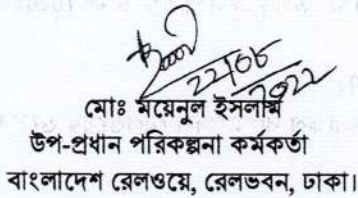 22/08/2022
মোঃ ময়েনুল ইসলাম
উপ-প্রধান পরিকল্পনা কর্মকর্তা
বাংলাদেশ রেলওয়ে, রেলভবন, ঢাকা।